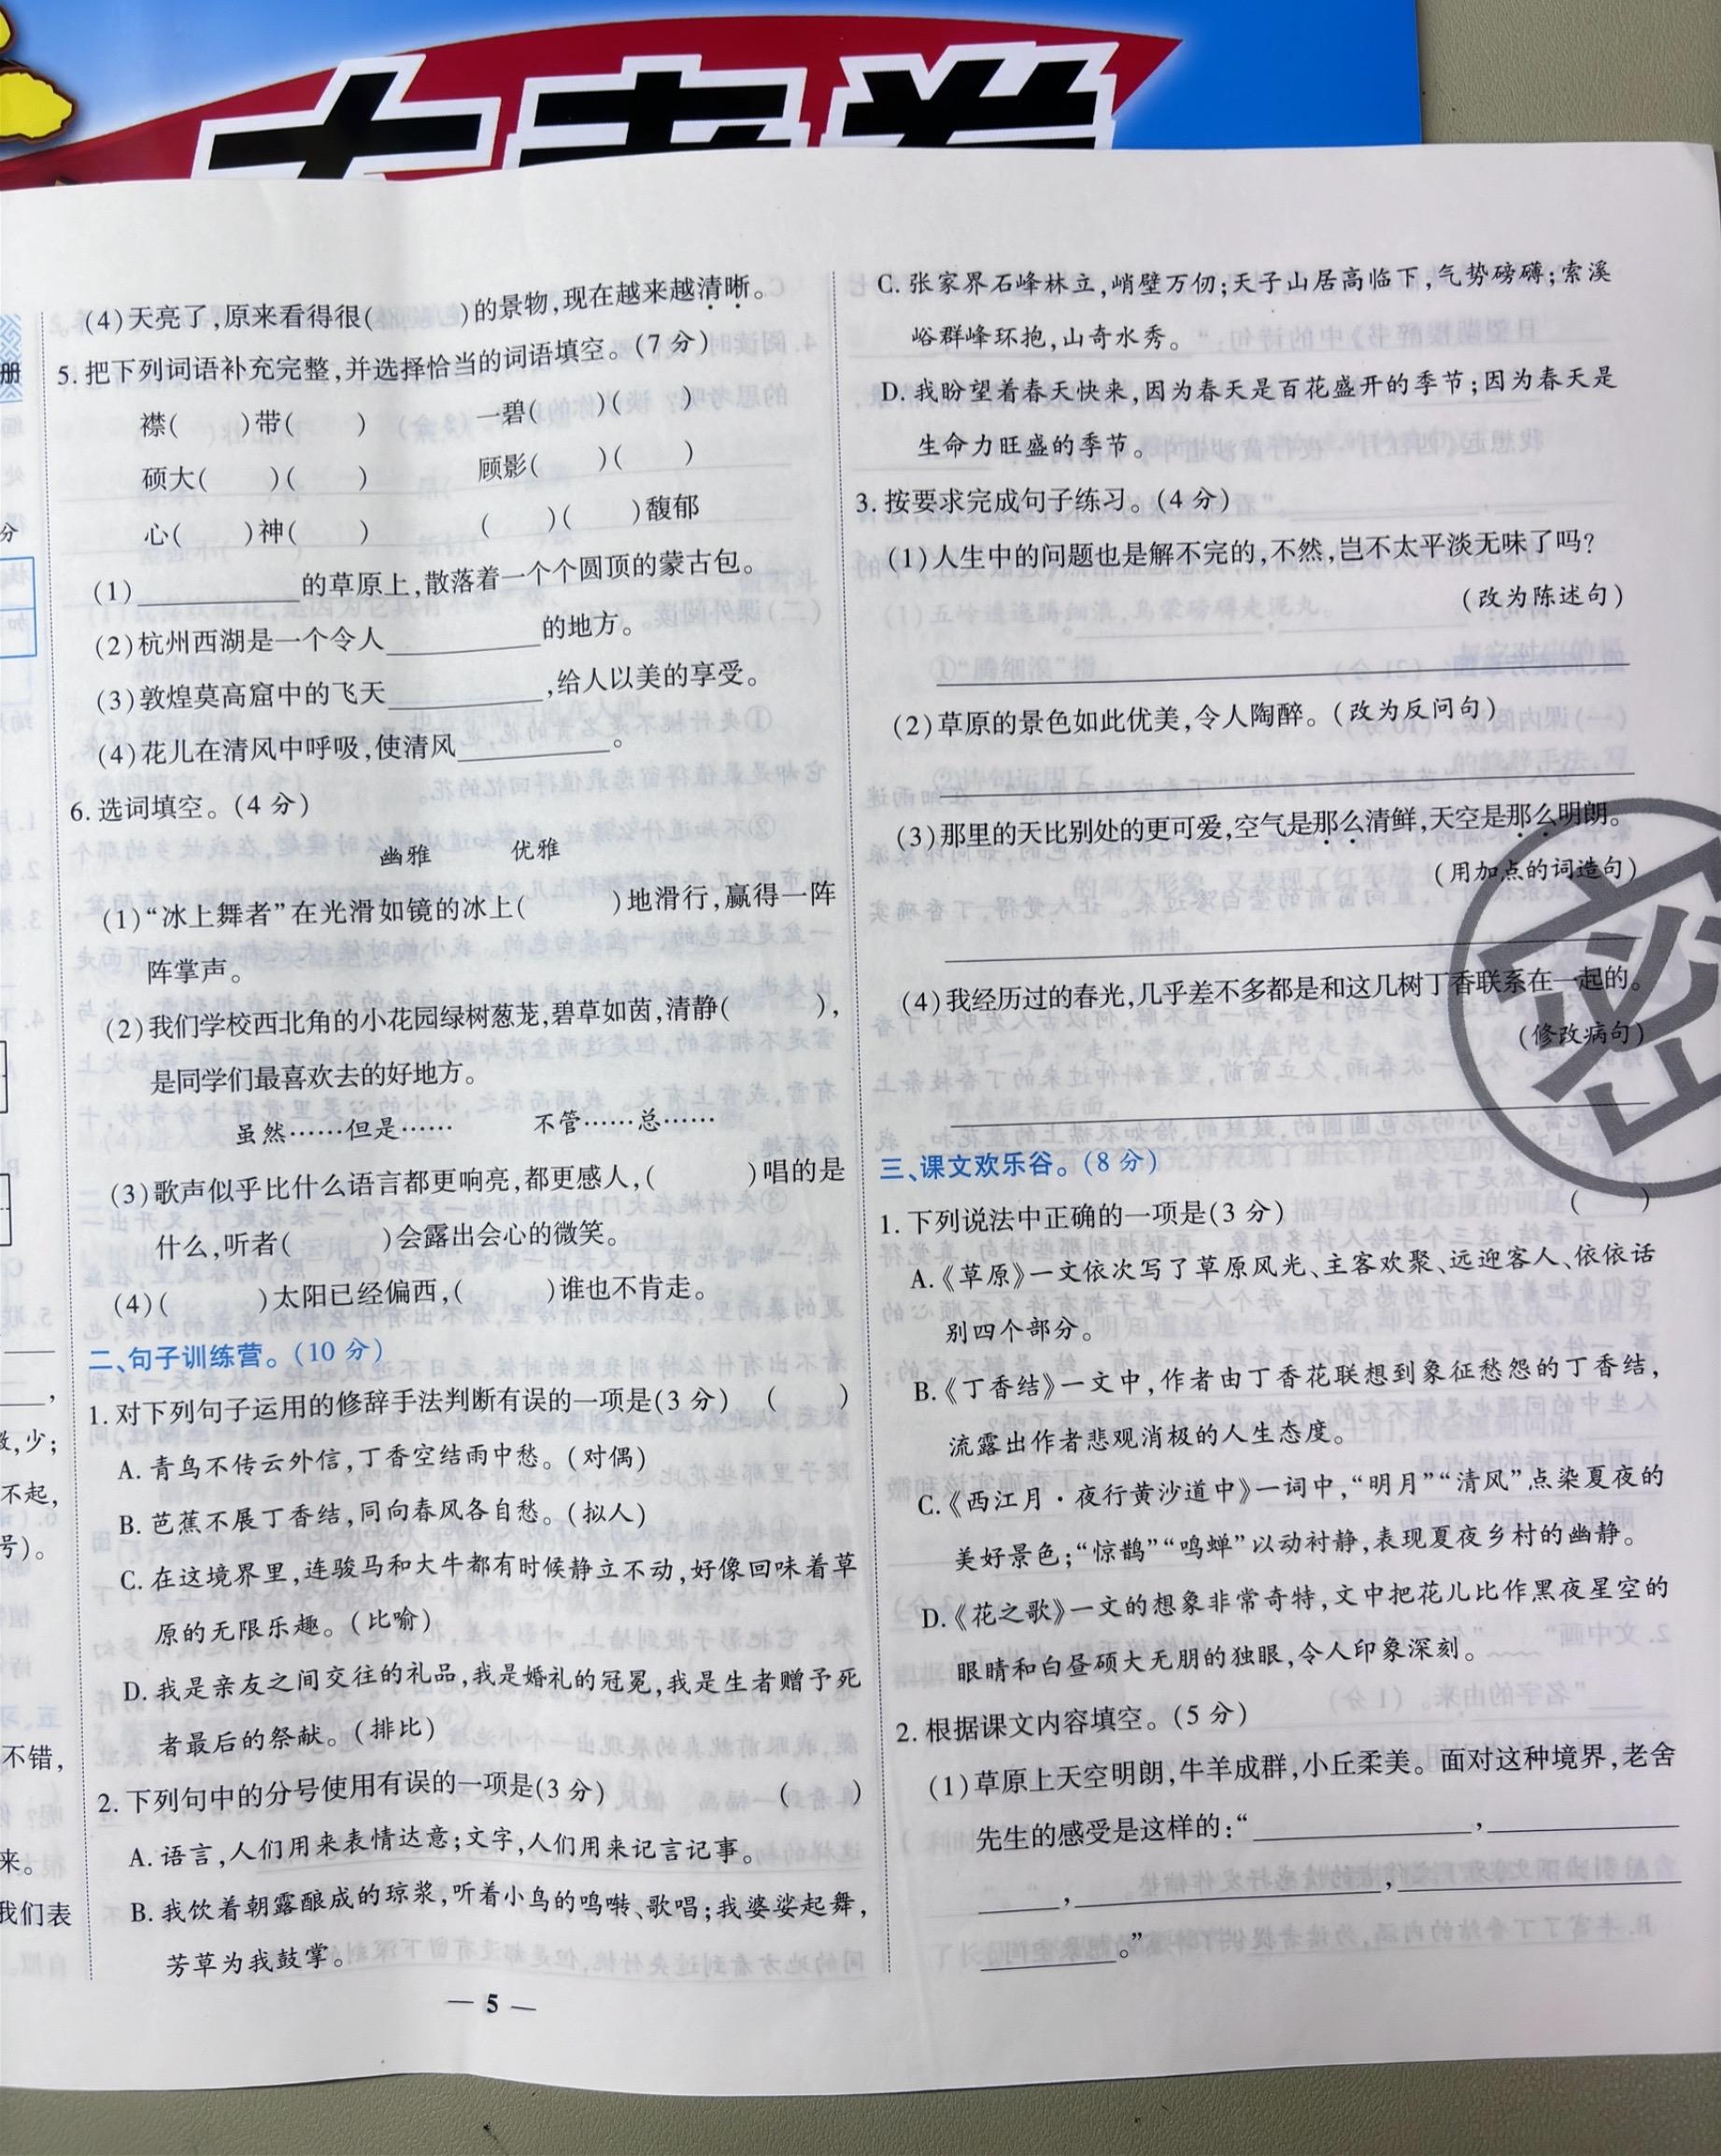 大考卷
(4)天亮了,原来看得很(　　)的景物,现在越来越清晰。
5. 把下列词语补充完整,并选择恰当的词语填空。(7 分)
襟(　　)带(　　)　　一碧(　　)(　　)
硕大(　　)(　　)　　顾影(　　)(　　)
心(　　)神(　　)　　(　　)(　　)馥郁
(1)__________的草原上,散落着一个个圆顶的蒙古包。
(2)杭州西湖是一个令人__________的地方。
(3)敦煌莫高窟中的飞天__________,给人以美的享受。
(4)花儿在清风中呼吸,使清风__________。
6. 选词填空。(4 分)
幽雅　　优雅
(1)“冰上舞者”在光滑如镜的冰上(　　)地滑行,赢得一阵
阵掌声。
(2)我们学校西北角的小花园绿树葱茏,碧草如茵,清静(　　),
是同学们最喜欢去的好地方。
虽然……但是……　　不管……总……
(3)歌声似乎比什么语言都更响亮,都更感人,(　　)唱的是
什么,听者(　　)会露出会心的微笑。
(4)(　　)太阳已经偏西,(　　)谁也不肯走。
二、句子训练营。(10 分)
1. 对下列句子运用的修辞手法判断有误的一项是(3 分)　(　　)
A. 青鸟不传云外信,丁香空结雨中愁。(对偶)
B. 芭蕉不展丁香结,同向春风各自愁。(拟人)
C. 在这境界里,连骏马和大牛都有时候静立不动,好像回味着草
原的无限乐趣。(比喻)
D. 我是亲友之间交往的礼品,我是婚礼的冠冕,我是生者赠予死
者最后的祭献。(排比)
2. 下列句中的分号使用有误的一项是(3 分)　(　　)
A. 语言,人们用来表情达意;文字,人们用来记言记事。
B. 我饮着朝露酿成的琼浆,听着小鸟的鸣啭、歌唱;我婆娑起舞,
芳草为我鼓掌。
C. 张家界石峰林立,峭壁万仞;天子山居高临下,气势磅礴;索溪
峪群峰环抱,山奇水秀。
D. 我盼望着春天快来,因为春天是百花盛开的季节;因为春天是
生命力旺盛的季节。
3. 按要求完成句子练习。(4 分)
(1)人生中的问题也是解不完的,不然,岂不太平淡无味了吗?
(改为陈述句)
(2)草原的景色如此优美,令人陶醉。(改为反问句)
(3)那里的天比别处的更可爱,空气是那么清鲜,天空是那么明朗。
(用加点的词造句)
(4)我经历过的春光,几乎差不多都是和这几树丁香联系在一起的。
(修改病句)
密
三、课文欢乐谷。(8 分)
1. 下列说法中正确的一项是(3 分)　(　　)
A.《草原》一文依次写了草原风光、主客欢聚、远迎客人、依依话
别四个部分。
B.《丁香结》一文中,作者由丁香花联想到象征愁怨的丁香结,
流露出作者悲观消极的人生态度。
C.《西江月·夜行黄沙道中》一词中,“明月”“清风”点染夏夜的
美好景色;“惊鹊”“鸣蝉”以动衬静,表现夏夜乡村的幽静。
D.《花之歌》一文的想象非常奇特,文中把花儿比作黑夜星空的
眼睛和白昼硕大无朋的独眼,令人印象深刻。
2. 根据课文内容填空。(5 分)
(1)草原上天空明朗,牛羊成群,小丘柔美。面对这种境界,老舍
先生的感受是这样的:“__________,__________
____,__________,__________
______。”
— 5 —
册
分
少;
不起,
号)。
不错,
来。
我们表